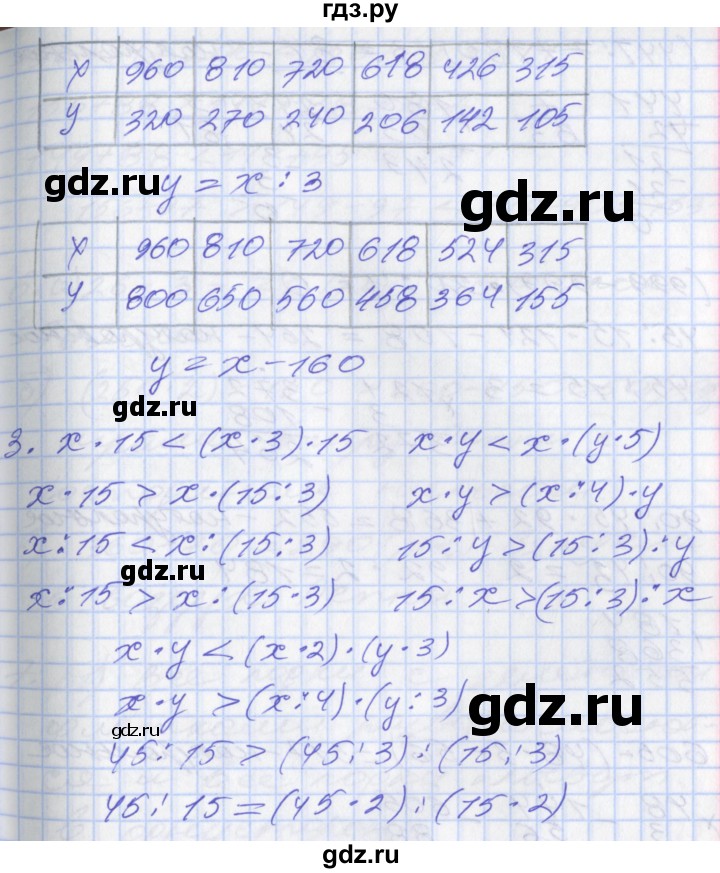 гдз.ру
x 960 810 720 618 426 315
y 320 270 240 206 142 105
gdz.ru
y = x : 3
gdz.ru
x 960 810 720 618 524 315
y 800 650 560 458 364 155
y = x - 160
gdz.ru
3. x · 15 < (x · 3) · 15 x · y < x · (y · 5)
x · 15 > x · (15 : 3) x · y > (x : 4) · y
x : 15 < x : (15 : 3) 15 : y > (15 : 3) : y
gdz.ru
x : 15 > x : (15 · 3) 15 : x > (15 : 3) : x
x · y < (x · 2) · (y · 3)
x · y > (x : 4) · (y : 3)
gdz.ru
gdz.ru
45 : 15 > (45 : 3) : (15 : 3)
45 : 15 = (45 · 2) : (15 · 2)
gdz.ru